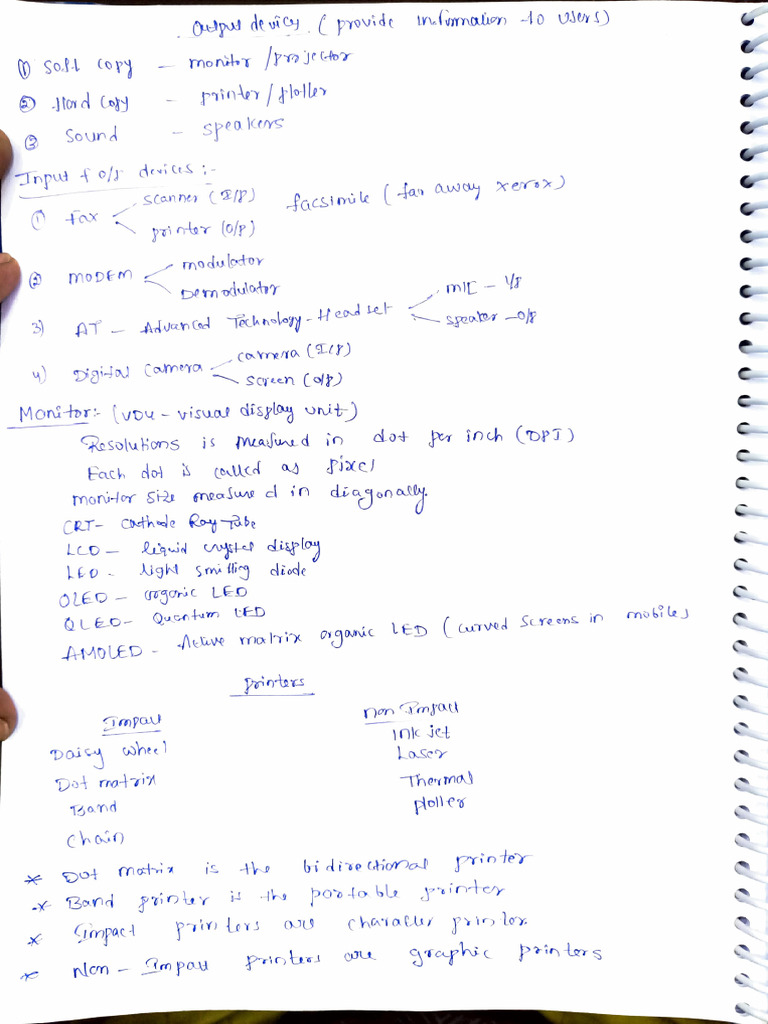 Output devices (provide information to users)
① Soft copy – monitor/projector
② Hard copy – printer/plotter
③ Sound – speakers
Input & o/p devices :-
① Fax scanner (I/p) facsimile (far away xerox)
printer (o/p)
② MODEM modulator
Demodulator
3) AT – Advanced Technology – Headset MIC – I/p
speaker – o/p
4) Digital Camera camera (I/p)
screen (o/p)
Monitor:- (VDU – visual display unit)
Resolutions is measured in dot per inch (DPI)
Each dot is called as pixel
monitor size measured in diagonally.
CRT- Cathode Ray Tube
LCD – liquid crystal display
LED - light emitting diode
OLED – organic LED
QLED- Quantum LED
AMOLED - Active matrix organic LED (curved screens in mobiles
Printers
Impact Non Impact
Daisy wheel Ink jet
Dot matrix Laser
Band Thermal
Chain plotter
* Dot matrix is the bidirectional printer
* Band printer is the portable printer
* Impact printers are character printer
* Non – Impact printers are graphic printers